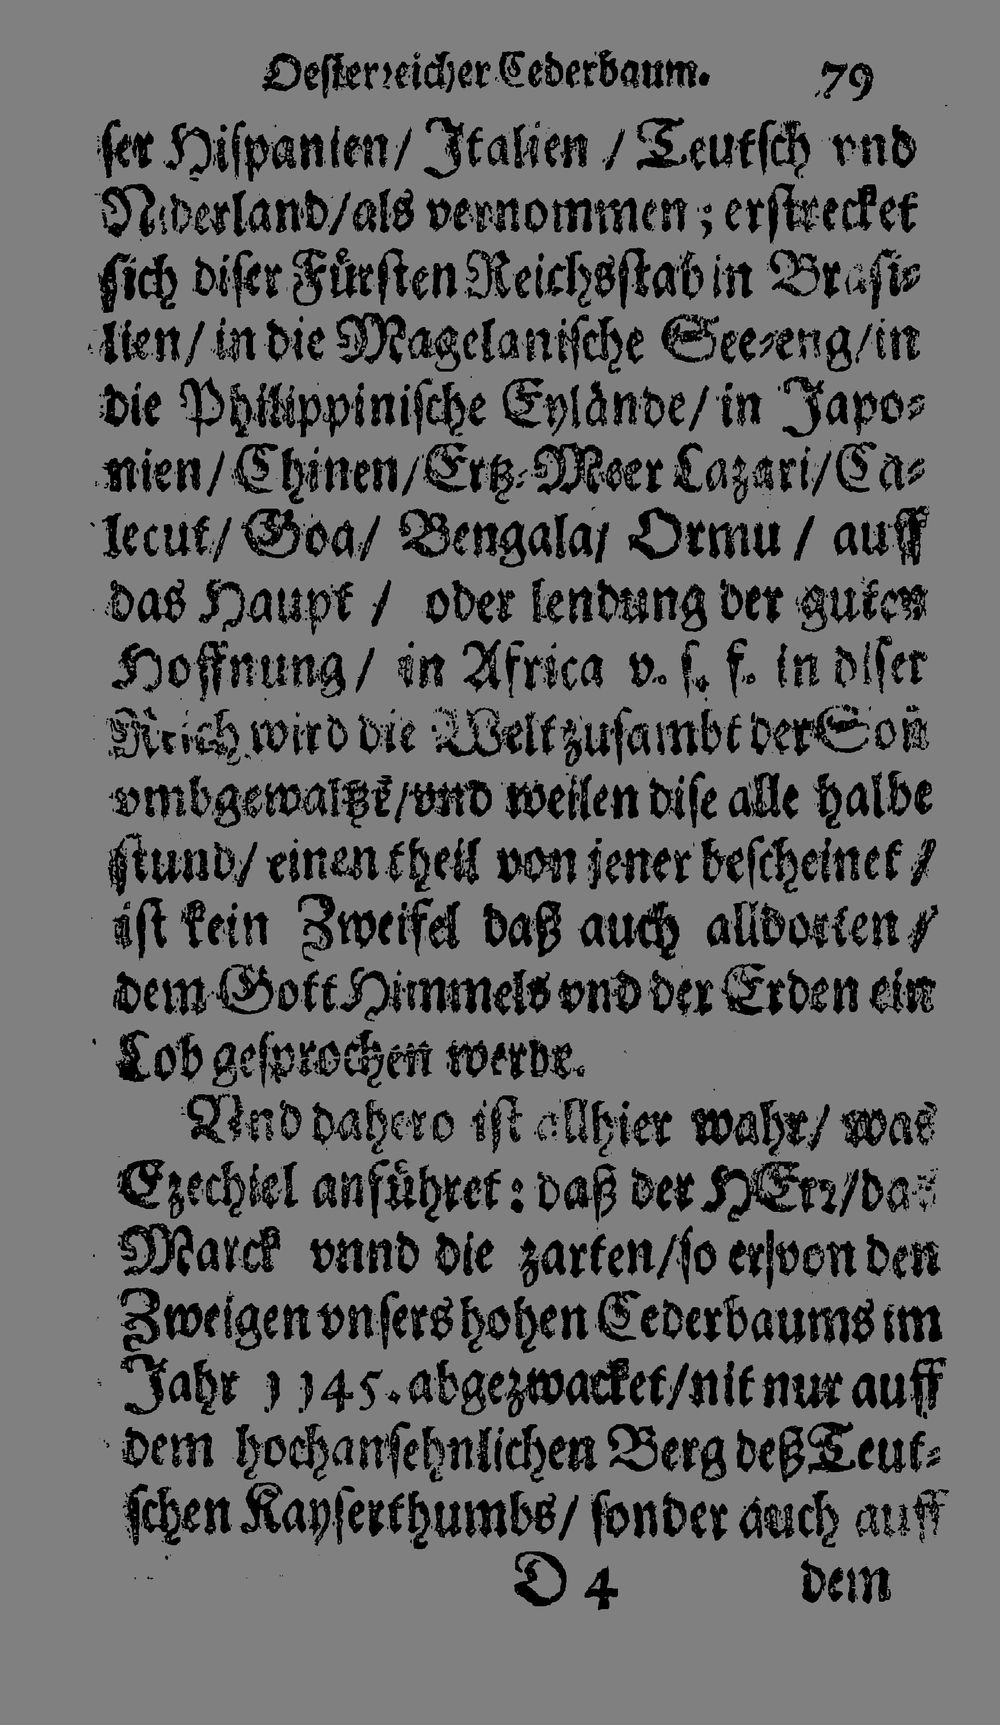 Oesterreicher Cederbaum. 79
ser Hispanien/ Italien / Teutsch vnd
Niderland/als vernommen; erstrecket
sich diser Fürsten Reichsstab in Brasi-
lien/ in die Magelanische See-eng/in
die Philippinische Eylände/ in Japo-
nien/ Chinen/Ertz-Meer Lazari/Ca-
lecut/ Goa/ Bengala/ Ormu / auff
das Haupt / oder lendung der guten
Hoffnung/ in Africa v. s. f. in diser
Reich wird die Welt zusambt der Soñ
vmbgewaltzt/vnd weilen dise alle halbe
stund/ einen theil von jener bescheinet /
ist kein Zweifel daß auch alldorten /
dem Gott Himmels vnd der Erden ein
Lob gesprochen werde.
Und dahero ist allhier wahr/ was
Ezechiel anführet: daß der HErr/das
Marck vnnd die zarten/so er von den
Zweigen vnsers hohen Cederbaums im
Jahr 1145. abgezwacket/nit nur auff
dem hochansehnlichen Berg deß Teut-
schen Kayserthumbs/ sonder auch auff
D 4 dem